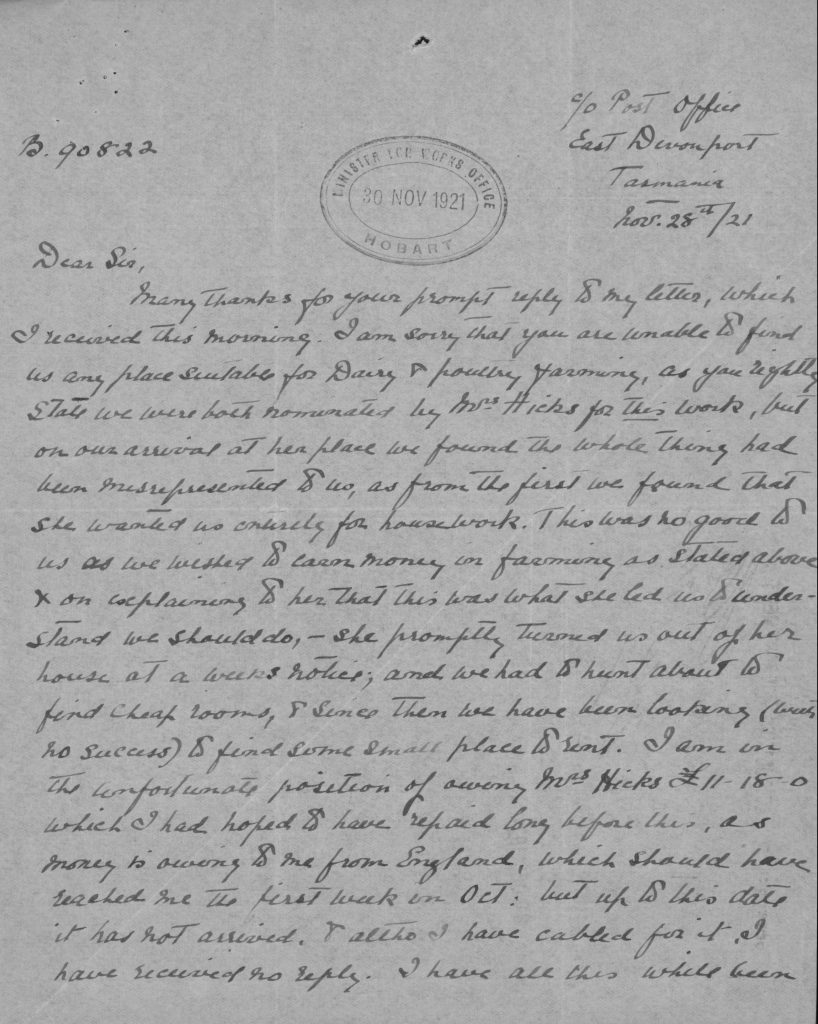 c/o Post Office
B. 90822
East Devonport
Tasmania
Nov. 28th/21
MINISTER FOR WORKS OFFICE
30 NOV 1921
HOBART
Dear Sir,
Many thanks for your prompt reply to my letter, which
I received this morning. I am sorry that you are unable to find
us any place suitable for Dairy & poultry farming, as you rightly
state we were both nominated by Mrs Hicks for this work, but
on our arrival at her place we found the whole thing had
been misrepresented to us, as from the first we found that
she wanted us entirely for housework. This was no good to
us as we wished to earn money in farming as stated above
& on explaining to her that this was what she led us to under-
stand we should do, – she promptly turned us out of her
house at a weeks notice; and we had to hunt about to
find cheap rooms, & since then we have been looking (with
no success) to find some small place to rent. I am in
the unfortunate position of owing Mrs Hicks £11-18-0
which I had hoped to have repaid long before this, as
money is owing to me from England, which should have
reached me the first week in Oct: but up to this date
it has not arrived, & altho I have cabled for it, I
have received no reply. I have all this while been